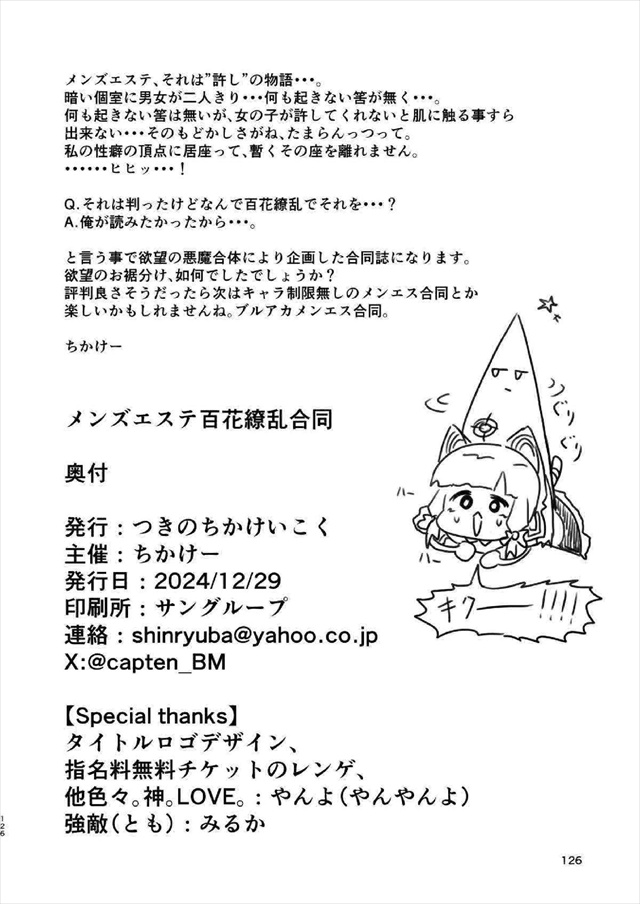 メンズエステ、それは”許し”の物語・・・。
暗い個室に男女が二人きり・・・何も起きない筈が無く・・・。
何も起きない筈は無いが、女の子が許してくれないと肌に触る事すら
出来ない・・・そのもどかしさがね、たまらんっつって。
私の性癖の頂点に居座って、暫くその座を離れません。
・・・・・・ヒヒッ・・・！
Q.それは判ったけどなんで百花繚乱でそれを・・・？
A.俺が読みたかったから・・・。
と言う事で欲望の悪魔合体により企画した合同誌になります。
欲望のお裾分け、如何でしたでしょうか？
評判良さそうだったら次はキャラ制限無しのメンエス合同とか
楽しいかもしれませんね。ブルアカメンエス合同。
ちかけー
メンズエステ百花繚乱合同
奥付
発行：つきのちかけいこく
主催：ちかけー
発行日：2024/12/29
印刷所：サングループ
連絡：shinryuba@yahoo.co.jp
X:@capten_BM
【Special thanks】
タイトルロゴデザイン、
指名料無料チケットのレンゲ、
他色々。神。LOVE。：やんよ（やんやんよ）
強敵（とも）：みるか
ぐりぐり
ハー
ハー
キクーー!!!!
126
126